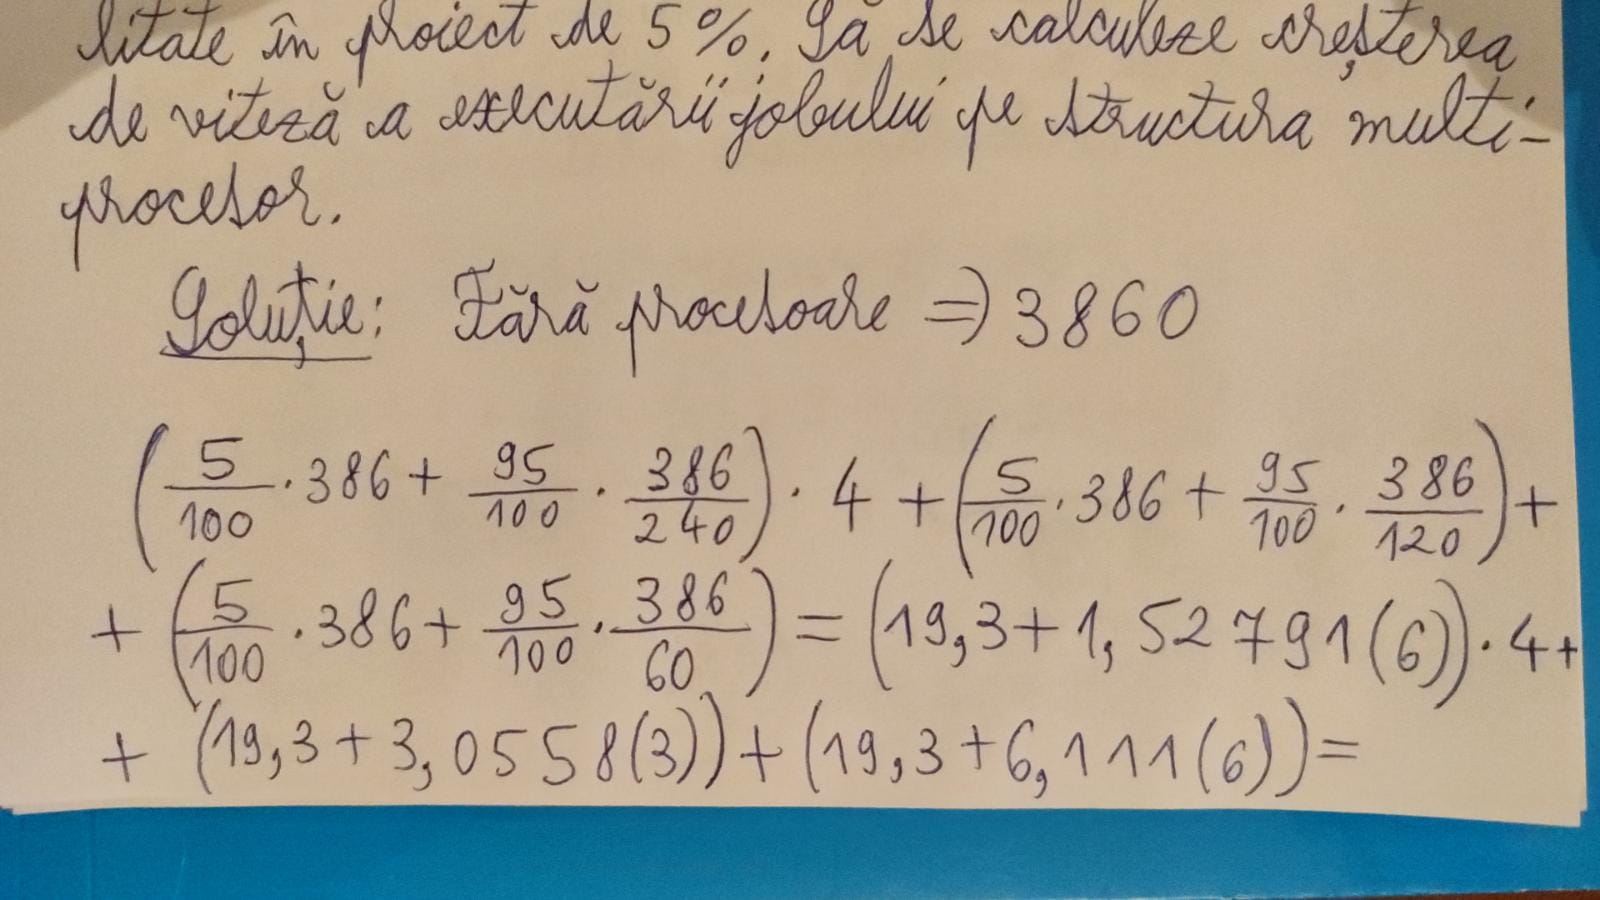 litate în proiect de 5%. Să se calculeze creșterea
de viteză a executării jobului pe structura multi-
procesor.
Soluție: Fără procesoare => 3860
(5/100 · 386 + 95/100 · 386/240) · 4 + (5/100 · 386 + 95/100 · 386/120) +
+ (5/100 · 386 + 95/100 · 386/60) = (19,3 + 1,52791(6)) · 4 +
+ (19,3 + 3,0558(3)) + (19,3 + 6,111(6)) =